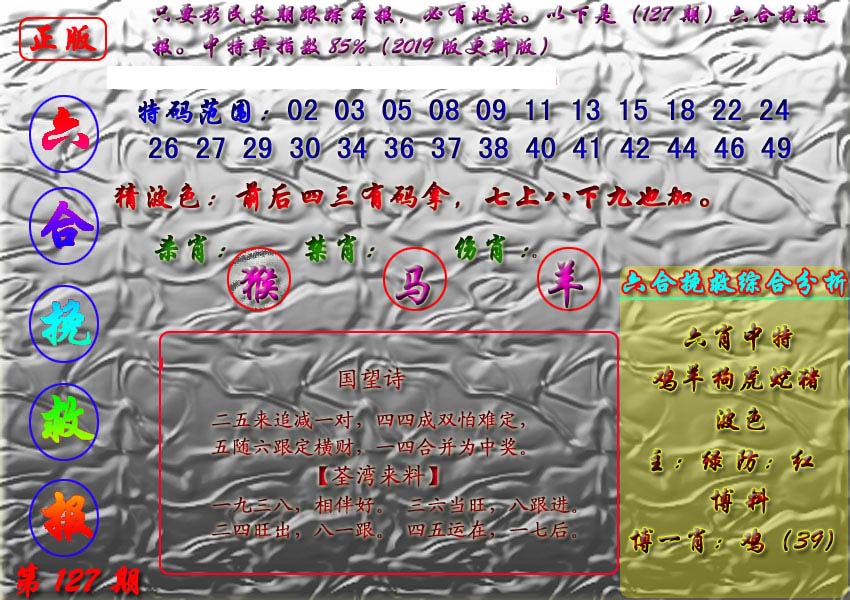 正版
只要彩民长期跟踪本报，必有收获。以下是（127期）六合挽救
报。中特率指数85%（2019版更新版）
六合挽救报
第127期
特码范围：02 03 05 08 09 11 13 15 18 22 24
26 27 29 30 34 36 37 38 40 41 42 44 46 49
猜波色：前后四三有码拿，七上八下九也加。
杀肖：猴 禁肖：马 伤肖：羊
国望诗
二五来追减一对，四四成双怕难定，
五随六跟定横财，一四合并为中奖。
【荃湾来料】
一九三八，相伴好。 三六当旺，八跟进。
二四旺出，八一跟。 四五运在，一七后。
六合挽救综合分析
六肖中特
鸡羊狗虎蛇猪
波色
主：绿防：红
博料
博一肖：鸡（39）